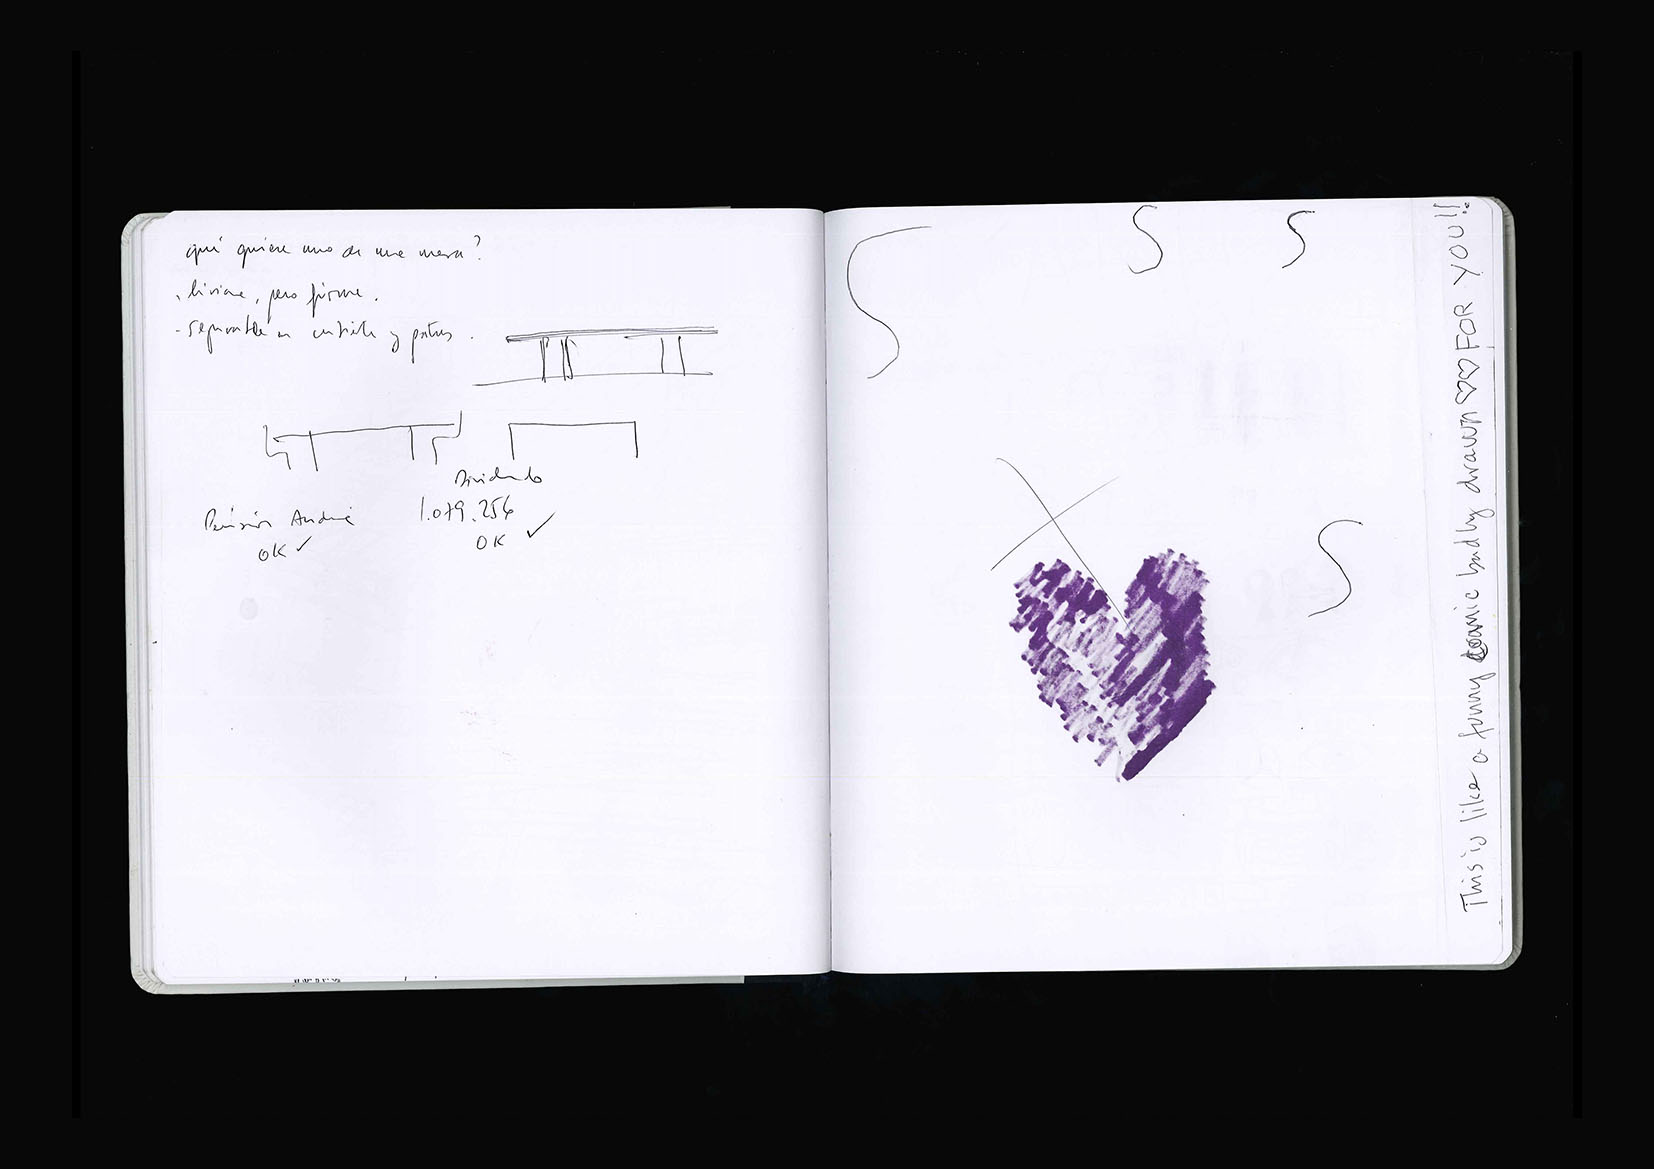 qué quiere uno de una mesa?
. liviana, pero firme.
- separable en cubierta y patas.
Dividendo
1.079.254
OK ✓
Pensión Andrea
OK ✓
S
S
S
S
This is like a funny comic badly drawn ♡♡ FOR YOU!!